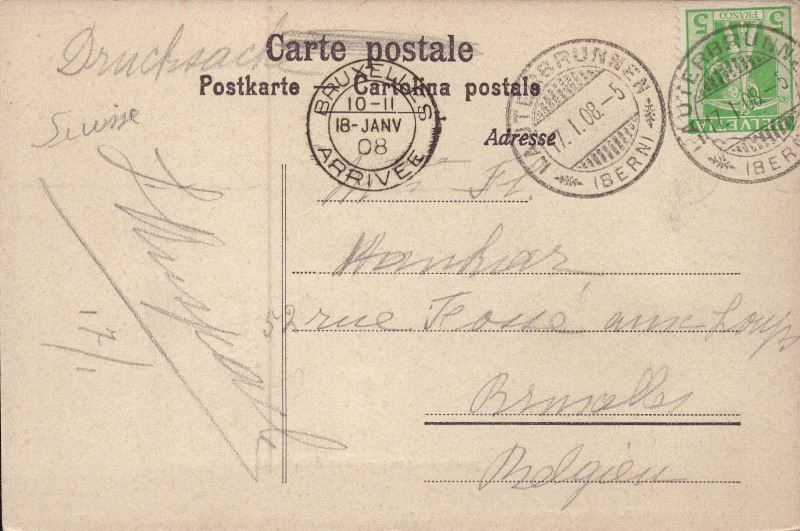 Drucksache
Carte postale
Postkarte — Cartolina postale
Suisse
Adresse
BRUXELLES
10-11
18-JANV
08
ARRIVÉE
LAUTERBRUNNEN
17.I.08.-5
(BERN)
LAUTERBRUNNEN
17.I.08.-5
(BERN)
5 5
FRANCO
HELVETIA
Hankar
52 rue Fossé aux Loups
Bruxelles
Belgien
17/1